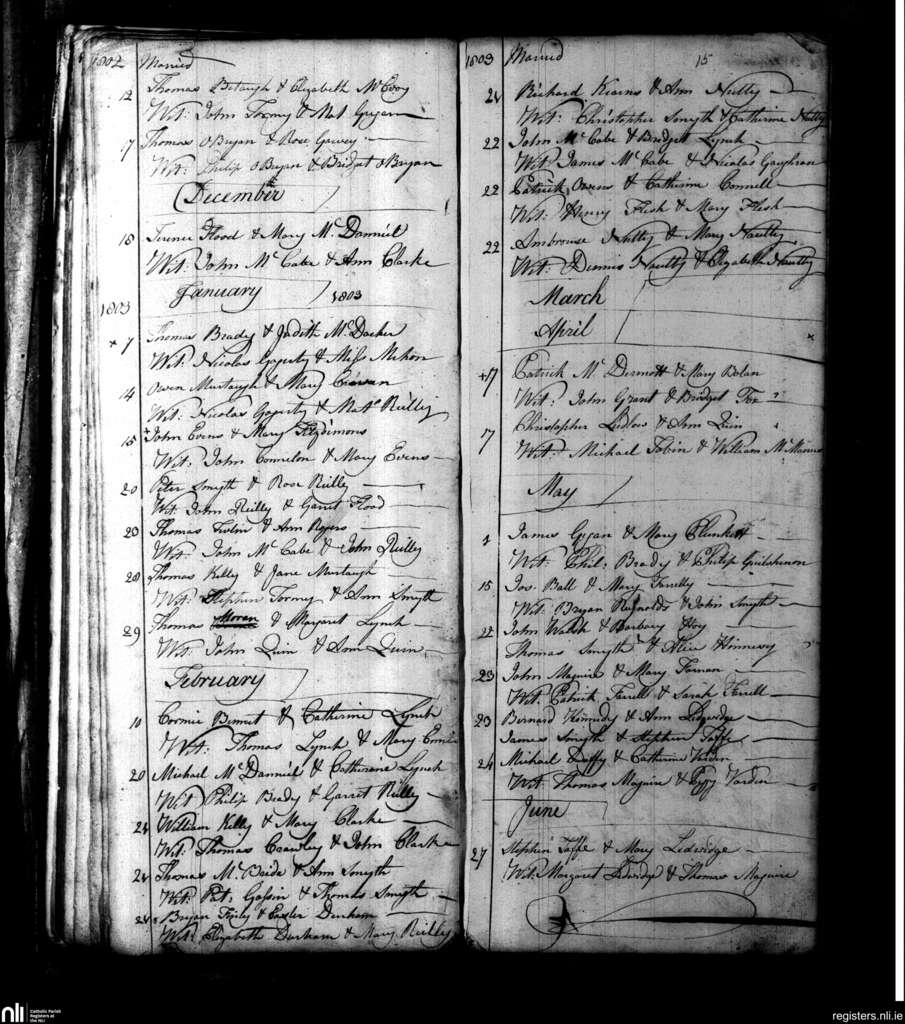 1802 Married
12 Thomas Betaugh & Elizabeth McEvoy
Wit: John Tormy & Mat Gugan
17 Thomas OBryan & Rose Garvey
Wit: Philip OBryan & Bridget OBryan
December
16 Terence Flood & Mary McDanniel
Wit: John McCabe & Ann Clarke
January 1803
1803
+ 7 Thomas Brady & Judith McDacker
Wit: Nicolas Gogerty & Miss Mehon
14 Owen Murtaugh & Mary Ciavan
Wit: Nicolas Gogerty & Mat Reilly
15 + John Evens & Mary Fitzsimons
Wit: John Connelon & Mary Evens
20 Peter Smyth & Rose Reilly
Wit John Reilly & Garret Flood
23 Thomas & Ann Rogers
Wit: John McCabe & John Reilly
28 Thomas Kelly & Jane Murtaugh
Wit: Stephen Tormy & Ann Smyth
29 Thomas Moran & Margaret Lynch
Wit: John Quin & Ann Quin
February
10 Cormic Bennet & Catherine Lynch
Wit: Thomas Lynch & Mary
20 Michael McDanniel & Catherine Lynch
Wit Philip Brady & Garret Reilly
24 William Kelly & Mary Clarke
Wit: Thomas Crawley & John Clarke
24 Thomas McBride & Ann Smyth
Wit: Pat: & Thomas Smyth
24 Bryan & Easter Durham
Wit: Elizabeth Durham & Mary Reilly
1803 Married 15
24 Richard Kearns & Ann Nulty
Wit: Christopher Smyth & Catherine Nulty
22 John McCabe & Bridget Lynch
Wit James McCabe & Nicolas Gaughran
22 Patrick Owens & Catherine Connell
Wit: Henry Flesh & Mary Flesh
22 Ambrouse Nulty & Mary Naulty
Wit: Dennis Naulty & Elizabeth Naulty
March
April
+17 Patrick McDermott & Mary Bolan
Wit: John Grant & Bridget Fox
7 Christopher Ludlow & Ann Quin
Wit: Michael Tobin & William McManus
May
1 James Gegan & Mary Plunkett
Wit: Phil: Brady & Philip
15 Jos Ball & Mary Farrelly
Wit: Bryan Reynolds & John Smyth
22 John Walsh & Barbary Hoy
Thomas Smyth & Alice Hinnevey
23 John Maguire & Mary Farnan
Wit Patrick Farrell & Sarah Farrell
23 Bernard Kennedy & Ann Lidwidge
James Smyth & Stephen Taffe
24 Michael Duffy & Catherine Varden
Wit Thomas Maguire & Peggy Varden
June
27 Stephen Taffe & Mary Lidwidge
Wit: Margaret Lidwidge & Thomas Maguire
nli Catholic Parish
Registers at
the NLI
registers.nli.ie